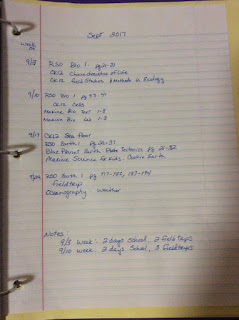 Sept 2017
week
of
9/3 RSO Bio 1 pg
CK12 Characteristics of Life
CK12 Field Studies & Methods in Biology
9/10 RSO Bio 1 pg
CK12 Cells
Marine Bio Text 1-3
Marine Bio Lab 1-3
9/17 CK12 Sea Floor
RSO Earth 1 pg
Blue Planet Earth Plate Tectonics pg
Marine Science for Kids
RSO Earth 1 pg 117-182, 187-194
field trip
Oceanography Weather
Notes:
9/3 week: 2 days school, 2 field trips
9/10 week: 2 days school, 3 field trips